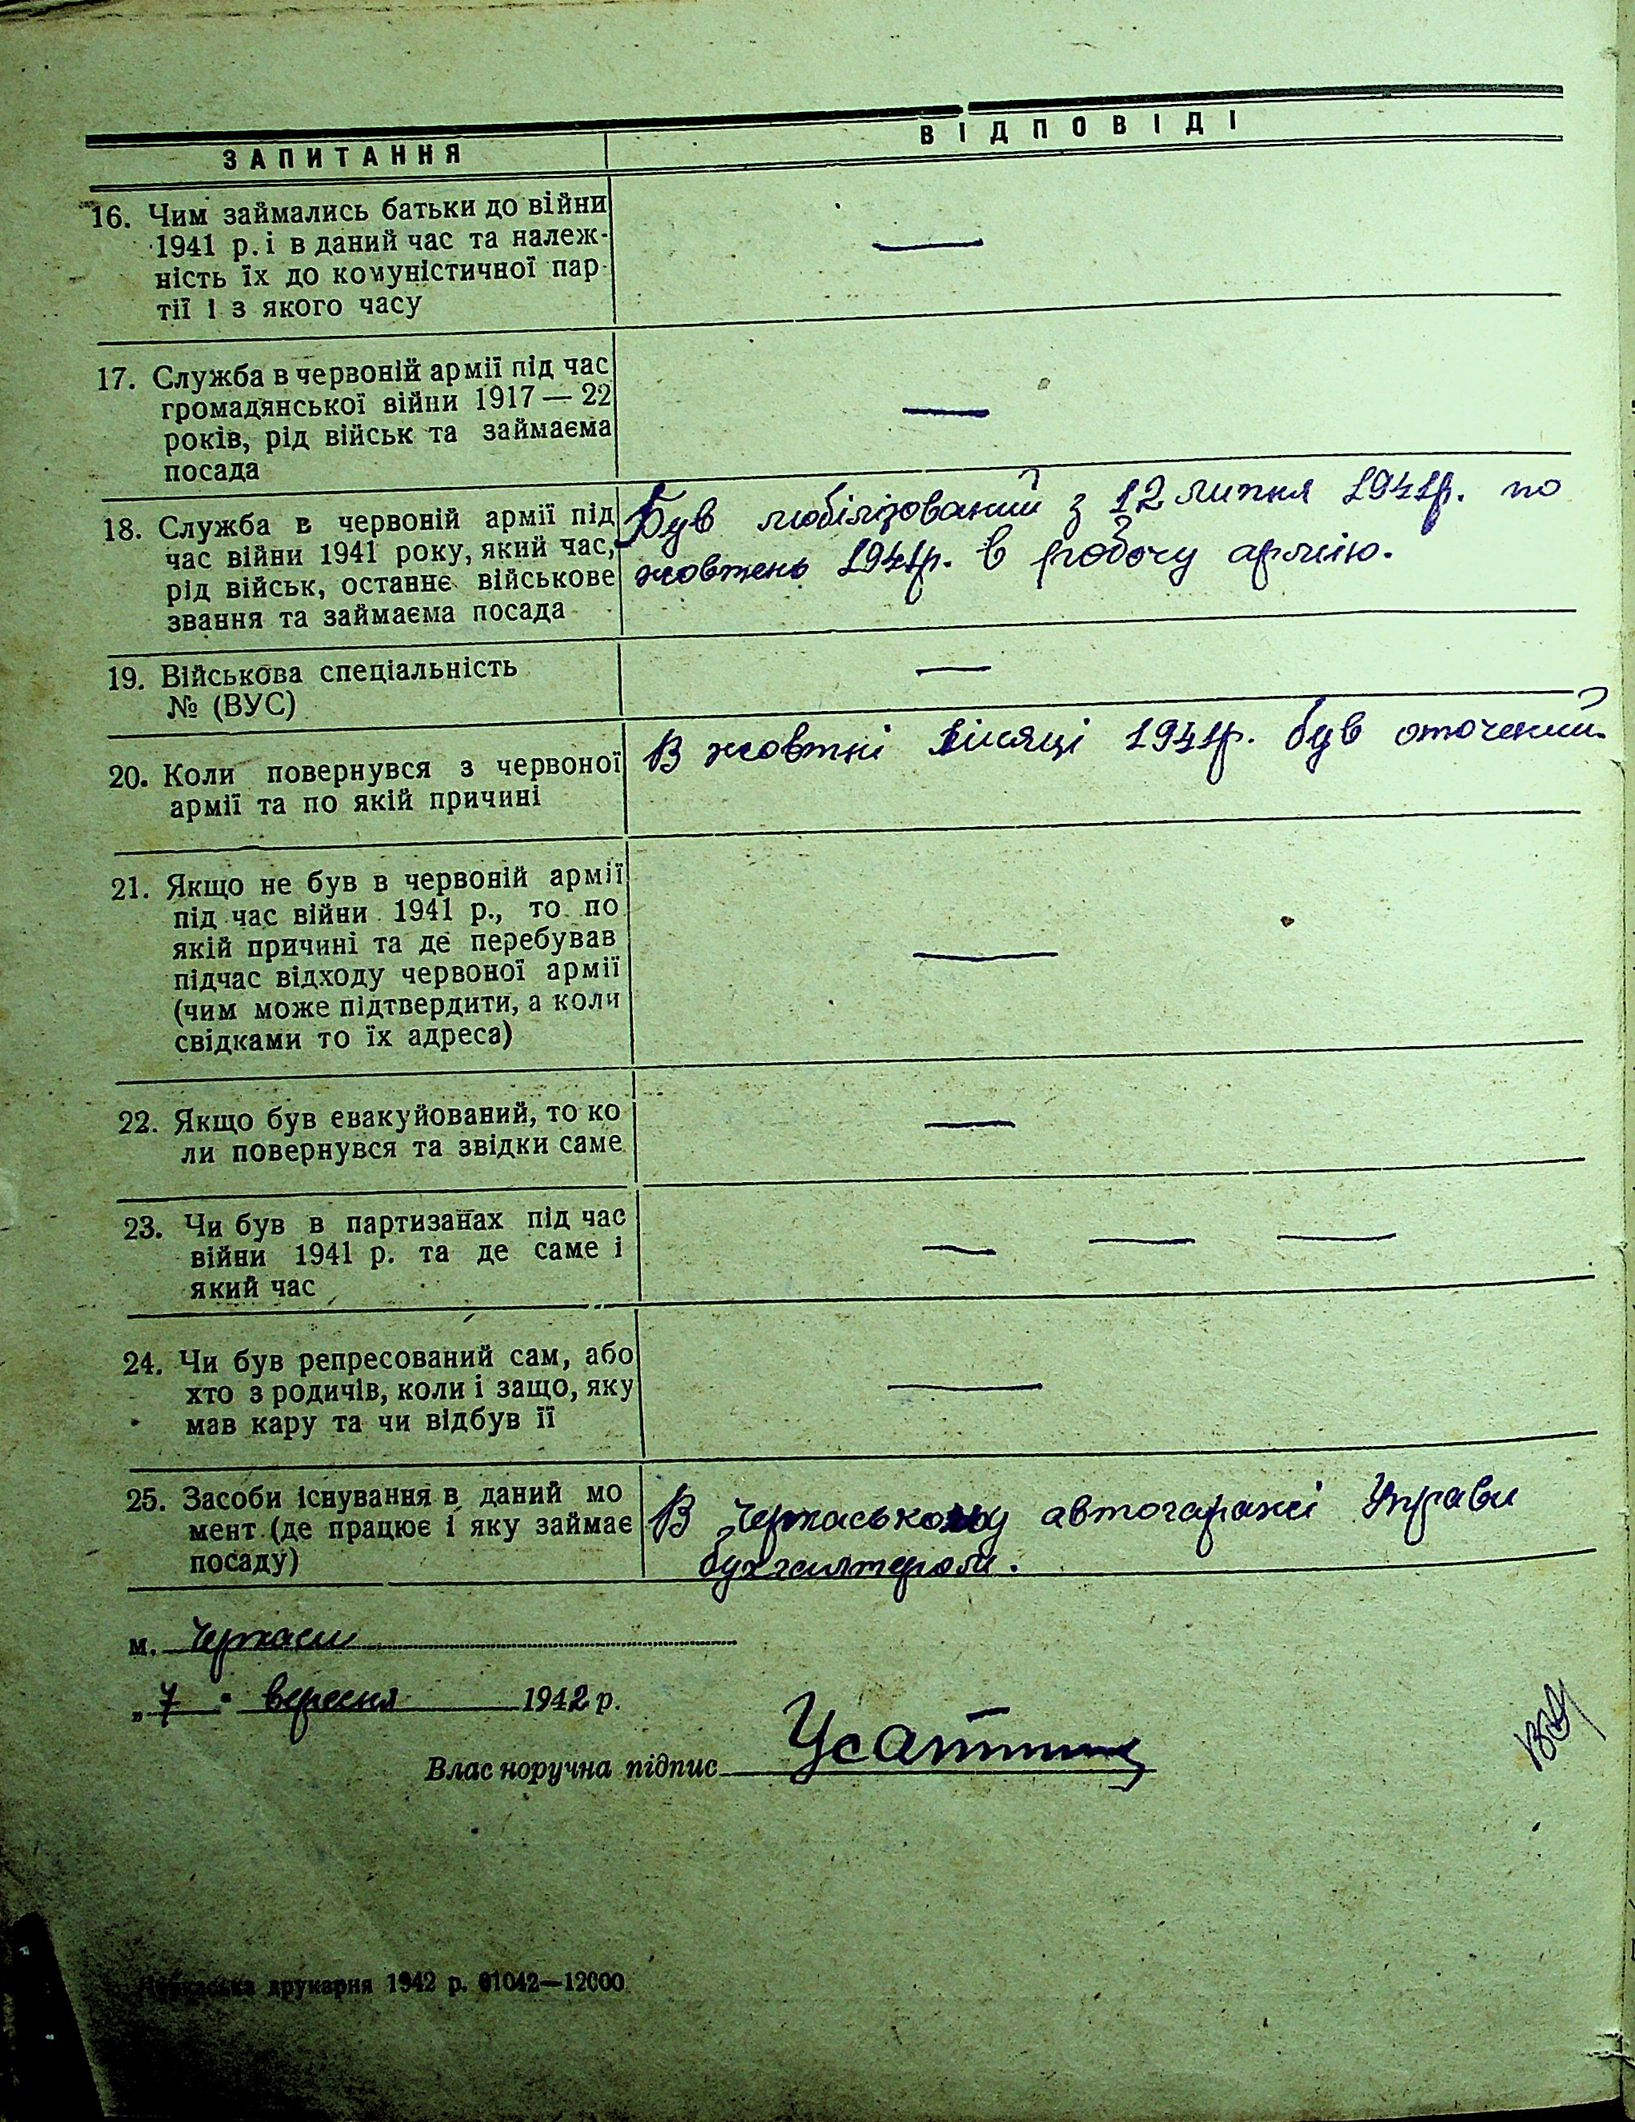 ЗАПИТАННЯ
ВІДПОВІДІ
16. Чим займались батьки до війни
1941 р. і в даний час та належ-
ність їх до комуністичної пар-
тії і з якого часу
—
17. Служба в червоній армії під час
громадянської війни 1917 — 22
років, рід військ та займаєма
посада
—
18. Служба в червоній армії під
час війни 1941 року, який час,
рід військ, останнє військове
звання та займаєма посада
Був мобілізований з 12 липня 1941р. по
жовтень 1941р. в робочу армію.
19. Військова спеціальність
№ (ВУС)
—
20. Коли повернувся з червоної
армії та по якій причині
В жовтні місяці 1941р. був оточений.
21. Якщо не був в червоній армії
під час війни 1941 р., то по
якій причині та де перебував
підчас відходу червоної армії
(чим може підтвердити, а коли
свідками то їх адреса)
—
22. Якщо був евакуйований, то ко
ли повернувся та звідки саме
—
23. Чи був в партизанах під час
війни 1941 р. та де саме і
який час
— — —
24. Чи був репресований сам, або
хто з родичів, коли і защо, яку
мав кару та чи відбув її
—
25. Засоби існування в даний мо
мент (де працює і яку займає
посаду)
В Черкаському автогаражі Управи
бухгалтером.
м. Черкаси
„7" вересня 1942 р.
Влас норучна підпис
Черкаська друкарня 1942 р. 01042—12000